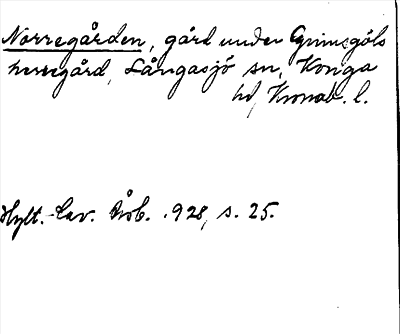 Norregården, gård under Grimsgöls
herregård, Långasjö sn, Konga
hd, Kronob. l.
Hylt.-Cav. Årb. 1928, s. 25.